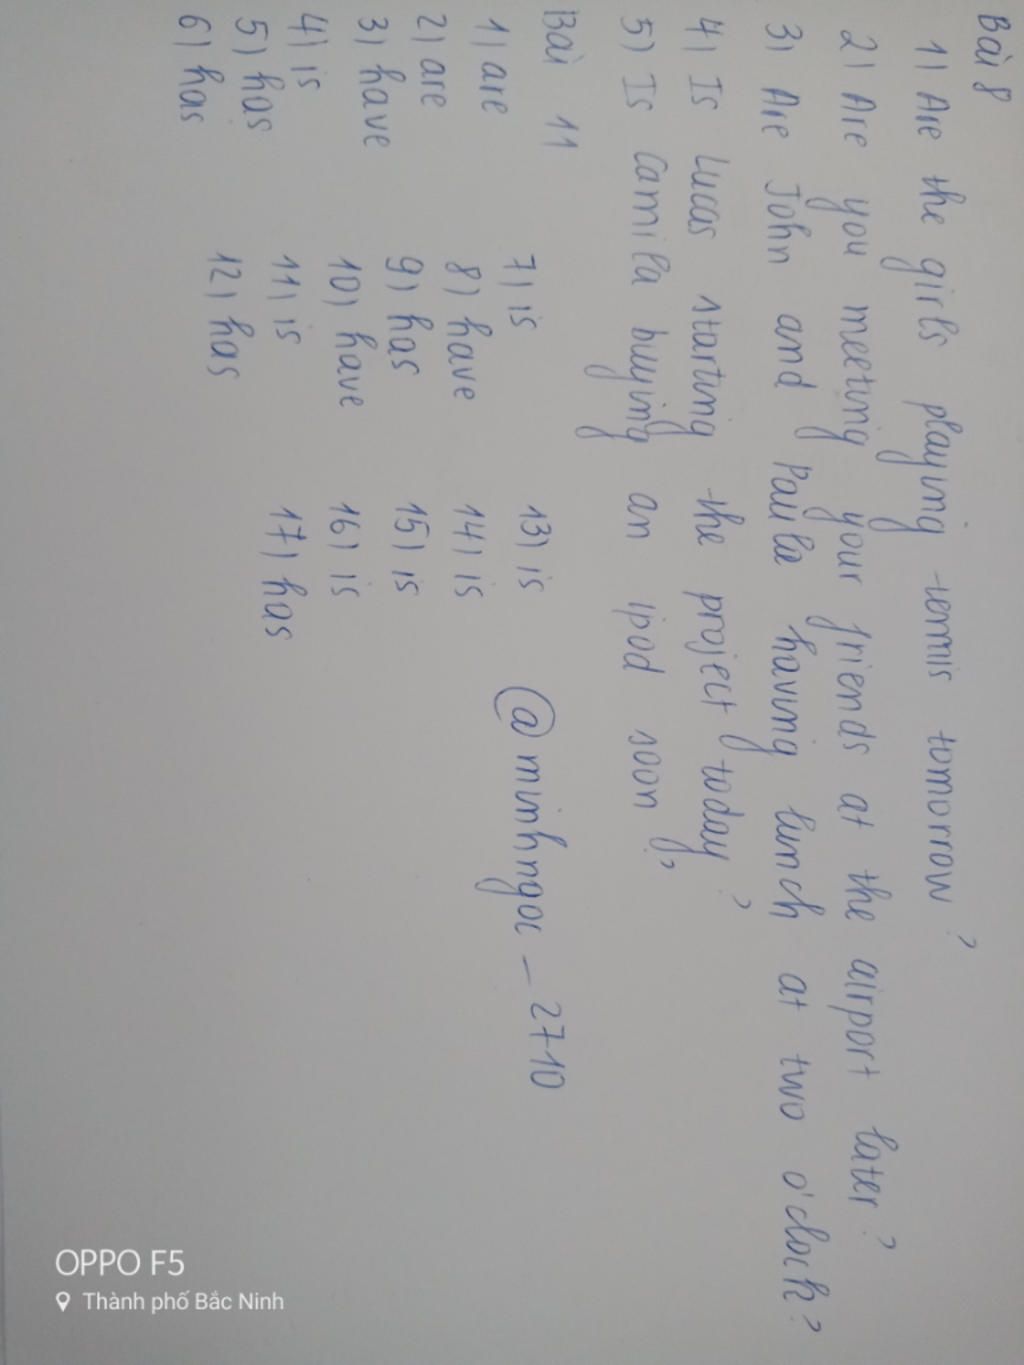 Bài 8
1) Are the girls playing tennis tomorrow ?
2) Are you meeting your friends at the airport later ?
3) Are John and Paula having lunch at two o'clock ?
4) Is Lucas starting the project today ?
5) Is Camila buying an ipod soon ?
Bài 11
1) are
2) are
3) have
4) is
5) has
6) has
7) is
8) have
9) has
10) have
11) is
12) has
13) is
14) is
15) is
16) is
17) has
@minhngoc - 2710
OPPO F5
Thành phố Bắc Ninh